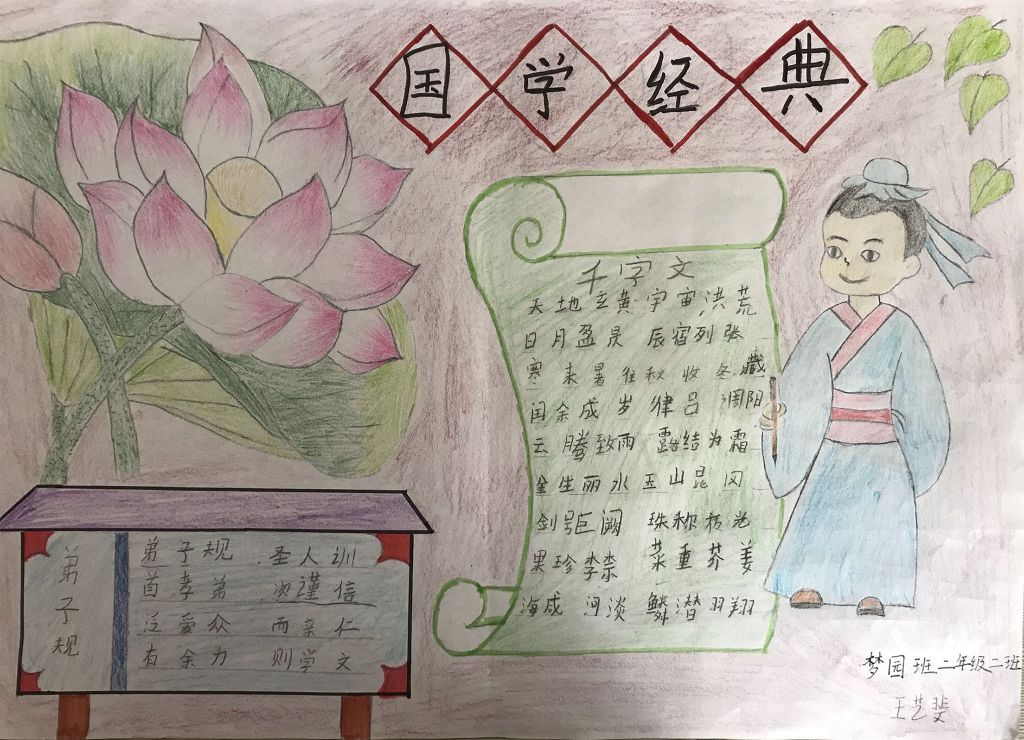 国学经典
千字文
天地玄黄 宇宙洪荒
日月盈昃 辰宿列张
寒来暑往 秋收冬藏
闰余成岁 律吕调阳
云腾致雨 露结为霜
金生丽水 玉山昆冈
剑号巨阙 珠称夜光
果珍李柰 菜重芥姜
海咸河淡 鳞潜羽翔
弟子规
弟子规 圣人训
首孝弟 次谨信
泛爱众 而亲仁
有余力 则学文
梦园班二年级二班
王艺斐